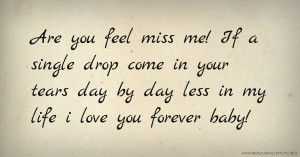 Are you feel miss me! If a
single drop come in your
tears day by day less in my
life i love you forever baby!